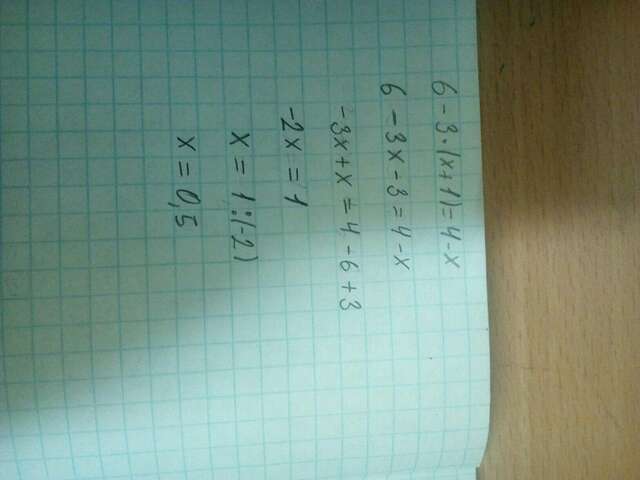 6-3·(x+1)=4-x
6-3x-3=4-x
-3x+x=4-6+3
-2x=1
x=1:(-2)
x=0,5